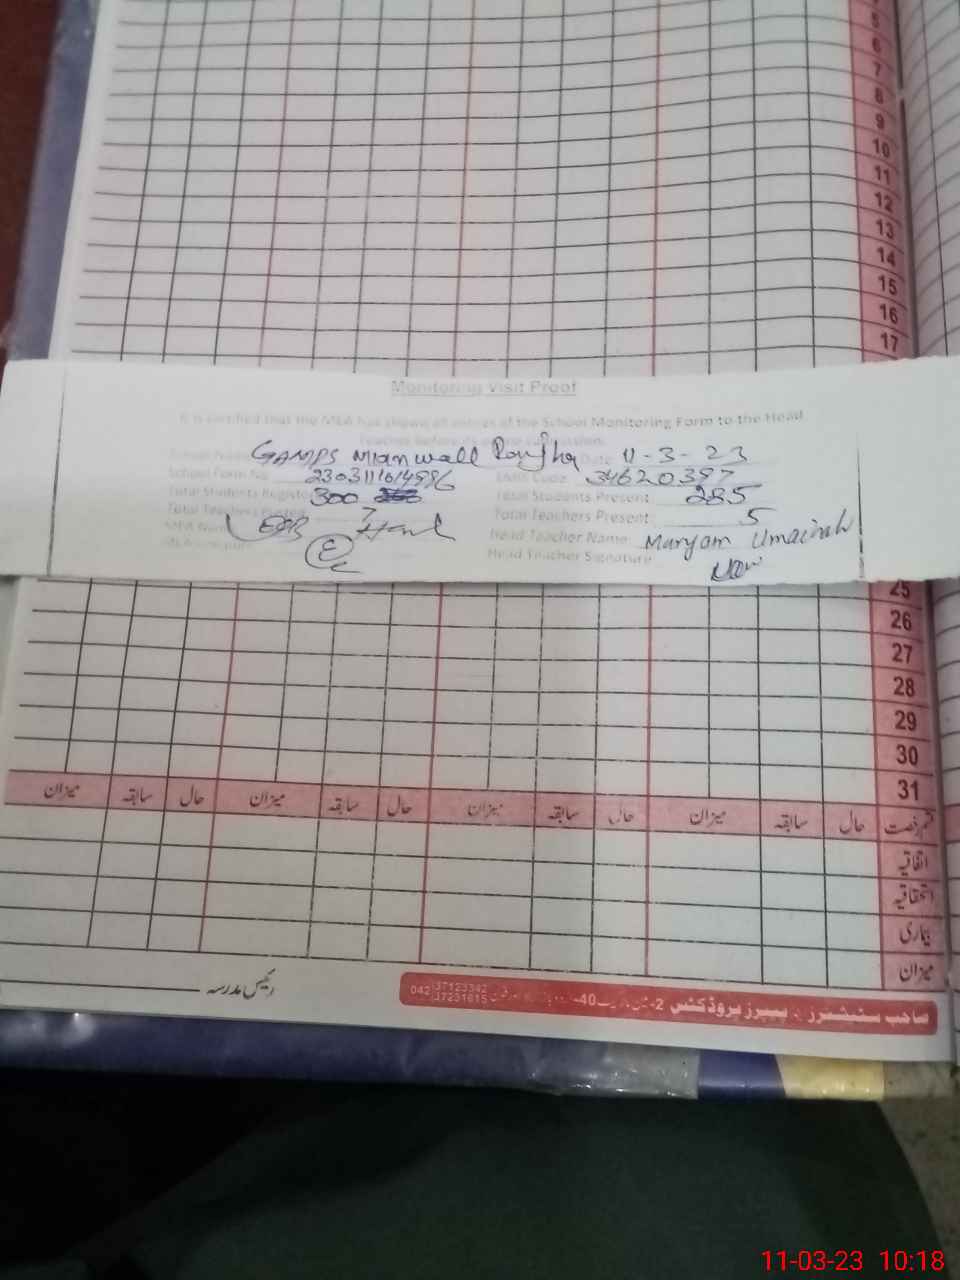 5
6
7
8
9
10
11
12
13
14
15
16
17
Monitoring Visit Proof
It is certified that the MEA has shown all entries of the School Monitoring Form to the Head
Teacher before its online submission.
School Name Mianwall Ranjha Date 11-3-23
School Form No Emis Code 34620397
Total Students Registered 300 Total Students Present 285
Total Teachers Posted 7 Total Teachers Present 5
MEA Name Head Teacher Name Maryam Umairah
Head Teacher Signature
25
26
27
28
29
30
31
قسم رخصت حال سابقہ میزان حال سابقہ میزان حال سابقہ میزان حال سابقہ میزان
اتفاقیہ
استحقاقیہ
بیماری
میزان
رئیس مدرسہ
صاحب سٹیشنرز پیپرز پروڈکٹس 2- 40- 042 37123342
37231615
11-03-23 10:18